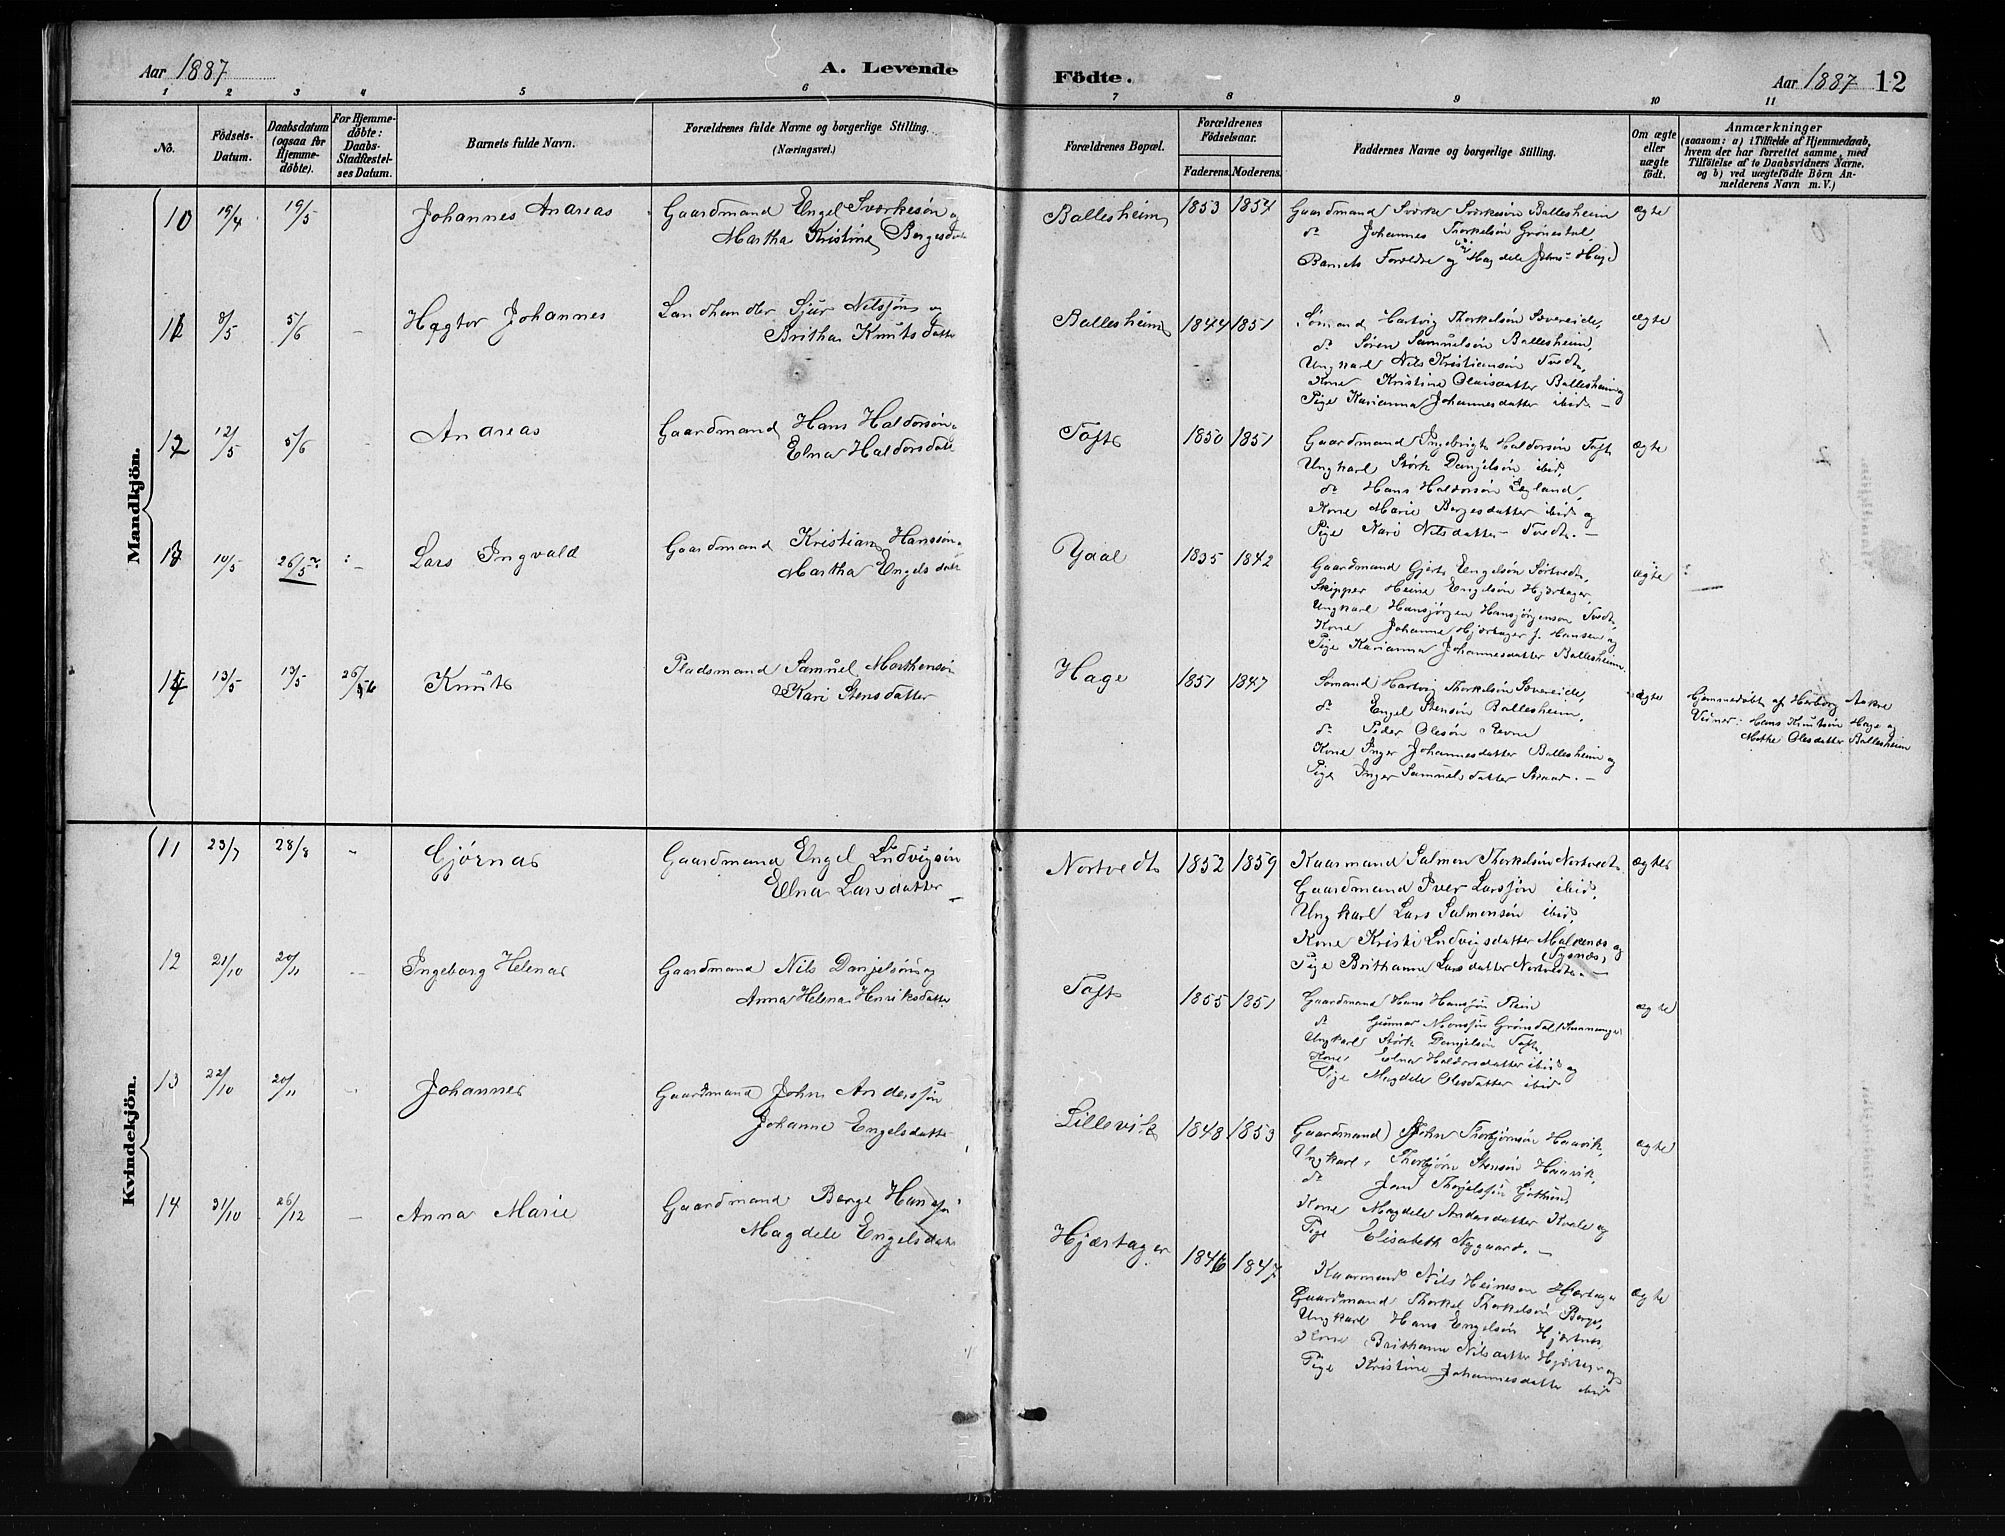 Aar 1887
A. Levende
Födte.
Aar 1887 12
1 2 3 4 5 6
7 8 9 10 11
No.
Födsels-Datum.
Daabsdatum (ogsaa for Hjemme-döbte).
For Hjemme-döbte: Daabs-Stadfæstel-ses Datum.
Barnets fulde Navn.
Forældrenes fulde Navne og borgerlige Stilling.
(Næringsvei.)
Forældrenes Bopæl.
Forældrenes Födselsaar.
Faderens. Moderens.
Faddernes Navne og borgerlige Stilling.
Om ægte eller uægte født.
Anmærkninger
(saasom: a) i Tilfælde af Hjemmedaab,
hvem der har forrettet samme, med
Tilföielse af to Daabsvidners Navne,
og b) ved uægtefödte Börn An-
melderens Navn m. V.)
Mandkjön.
10 15/4 19/5 Johannes Andreas
Gaardmand Engel Sværkesøn og
Martha Kristine Børgesdatter
Ballesheim 1853 1854
Gaardmand Sværke Sværkesøn Ballesheim
do Johannes Thorkelsøn Grønestøl,
Barnets Forældre og Magdele Johns Hage
ægte
11 8/5 5/6 - Hagtor Johannes
Landhandler Sjur Nilssøn og
Britha Knutsdatter
Ballesheim 1844 1851
Sømand Hartvig Thorkelsøn Sævereide,
do Søren Samuelsøn Ballesheim,
Ungkarl Nils Kristiansøn Tvedt,
Kone Kristine Olaisdatter Ballesheim og
Pige Karianna Johannesdatter ibid. -
ægte
12 12/5 5/6 - Andreas
Gaardmand Hans Haldorsøn
Elna Haldorsdatter
Toft 1850 1851
Gaardmand Ingebrigt Haldorsøn Toft
Ungkarl Størk Danjelsøn ibid,
do Hans Haldorsøn Egland,
Kone Marie Børgesdatter ibid og
Pige Kari Nilsdatter Tvedt. -
ægte
13 10/5 26/5 - Lars Ingvald
Gaardmand Kristian Hanssøn
Martha Engelsdatter
Ydal 1835 1842
Gaardmand Gjert Engelsøn Sørtvedt,
Skipper Heine Engelsøn Hjærtager,
Ungkarl Hansjørgen Hansjørgensøn Tvedt,
Kone Johanne Hjærtager f. Hansen og
Pige Karianna Johannesdatter Ballesheim
ægte
14 13/5 13/5 26/6 Knut
Pladsmand Samuel Mortensøn
Kari Stensdatter
Hage 1851 1847
Sømand Hartvig Thorkelsøn Sævereide,
do Engel Stensøn Ballesheim,
do Peder Olesøn Revne
Kone Inger Johannesdatter Ballesheim og
Pige Inger Samuelsdatter -
ægte
Hjemmedøbt af Herborg Aakre
Vidner: Hans Knutsøn Hage og
Mette Olesdatter Ballesheim
Kvindekjön.
11 23/7 28/8 - Gjørna
Gaardmand Engel Ludvigsøn
Elna Larsdatter -
Nortvedt 1852 1859
Kaarmand Salmon Thorkelsøn Nortvedt
Gaardmand Iver Larssøn ibid,
Ungkarl Lars Salmonsøn ibid,
Kone Kristi Ludvigsdatter Malkenæs og
(Tysnæs)
Pige Brithanne Larsdatter Nortvedt. -
ægte
12 21/10 20/11 - Ingeborg Helena
Gaardmand Nils Danjelsøn og
Anna Helena Henriksdatter
Toft 1855 1851
Gaardmand Hans Hanssøn Stein
do Gunnar Monssøn Grønsdal
Ungkarl Størk Danjelsøn Toft,
Kone Elna Haldorsdatter ibid og
Pige Magdele Olesdatter ibid
ægte
13 22/10 20/11 - Johanne
Gaardmand John Anderssøn
Johanne Engelsdatter
Lillevik 1848 1853
Gaardmand John Thorbjørnsøn Haavik,
Ungkarl Thorbjørn Stensøn Haavik
do
Kone Magdele Andersdatter Kvale og
Pige Elisabeth Nygaard. -
ægte
14 31/10 26/12 - Anna Marie
Gaardmand Børge Hanssøn
Magdele Engelsdatter
Hjærtager 1846 1847
Kaarmand Nils Heinesøn Hjærtager
Gaardmand Thorkel Thorkelsøn Berge,
Ungkarl Hans Engelsøn Hjærtnes,
Kone Brithanne Nilsdatter Hjærtager og
Pige Kristine Johannesdatter ibid
ægte